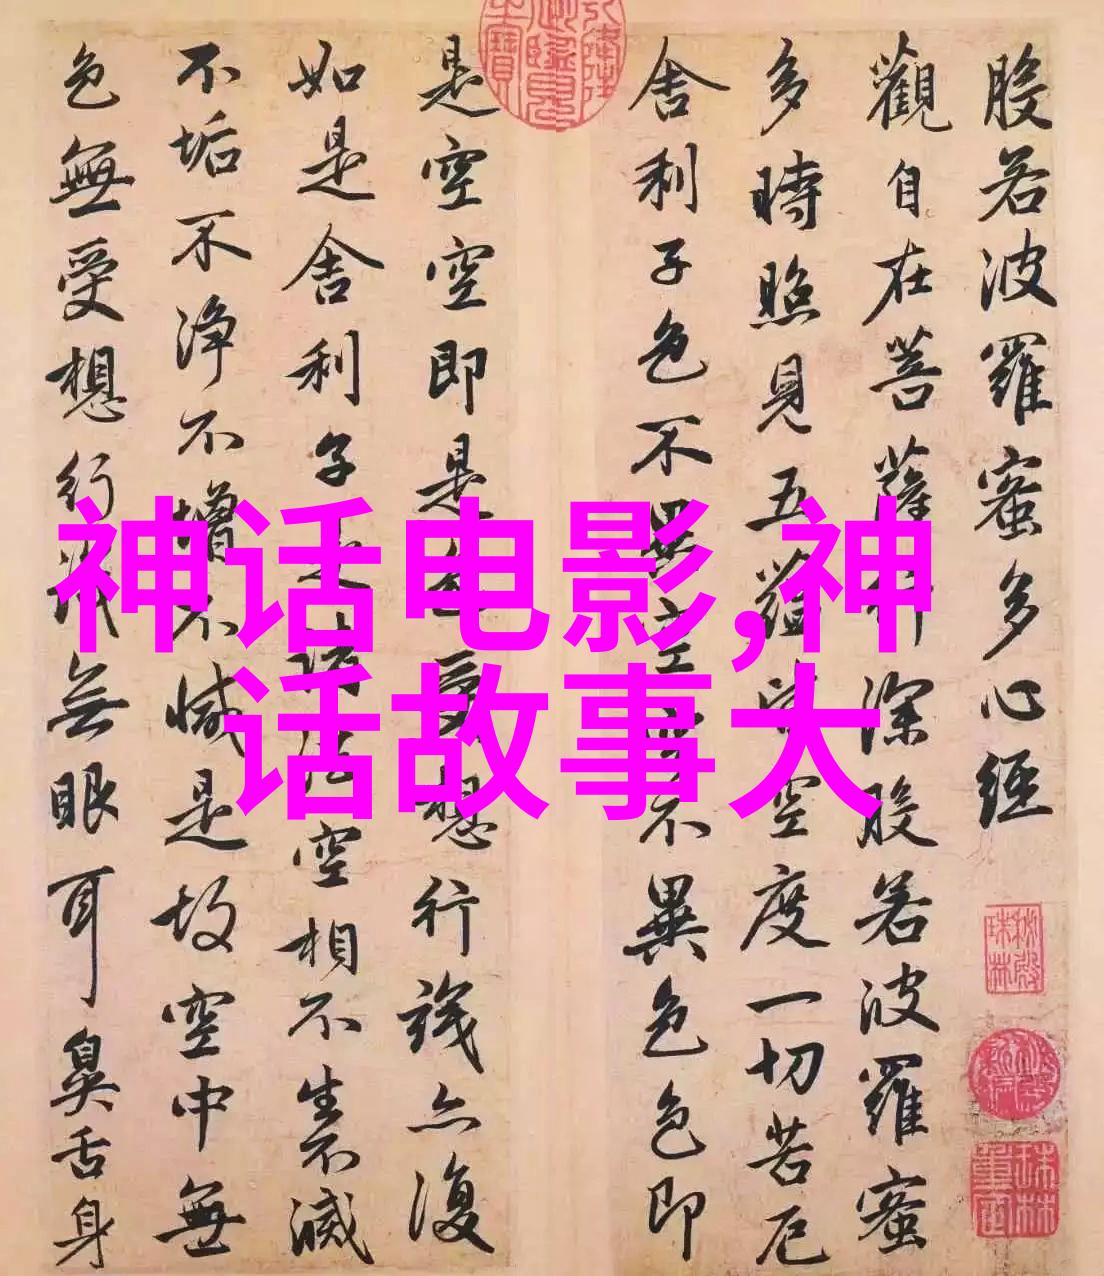 般若波羅蜜多心經
觀自在菩薩行深般若波羅蜜
多時照見五蘊皆空度一切苦厄
舍利子色不異空空不異色色即
是空空即是色受想行識亦復
如是舍利子是諸法空相不生不滅
不垢不淨不增不減是故空中無
色無受想行識無眼耳鼻舌身
神话电影,神
话故事大